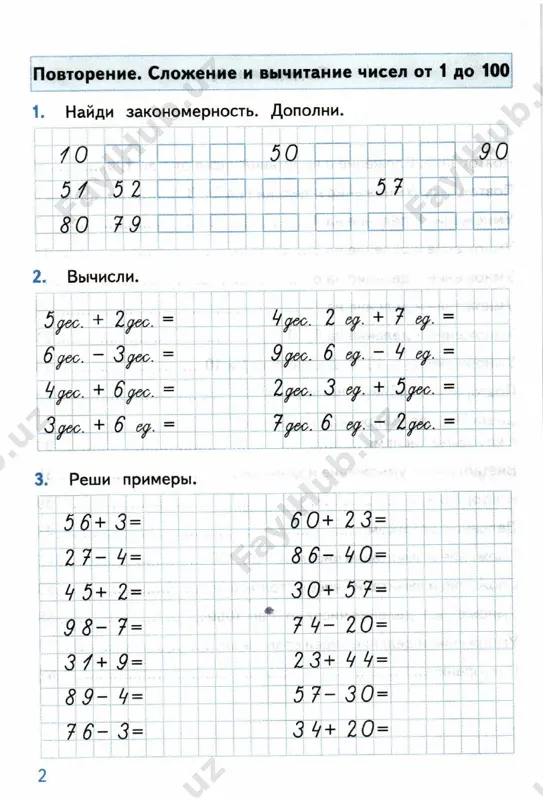 Повторение. Сложение и вычитание чисел от 1 до 100
1. Найди закономерность. Дополни.
10 50 90
51 52 57
80 79
2. Вычисли.
5 дес. + 2 дес. = 4 дес. 2 ед. + 7 ед. =
6 дес. – 3 дес. = 9 дес. 6 ед. – 4 ед. =
4 дес. + 6 дес. = 2 дес. 3 ед. + 5 дес. =
3 дес. + 6 ед. = 7 дес. 6 ед. – 2 дес. =
3. Реши примеры.
56 + 3 = 60 + 23 =
27 – 4 = 86 – 40 =
45 + 2 = 30 + 57 =
98 – 7 = 74 – 20 =
31 + 9 = 23 + 44 =
89 – 4 = 57 – 30 =
76 – 3 = 34 + 20 =
2
FaylHub.uz
FaylHub.uz
FaylHub.uz